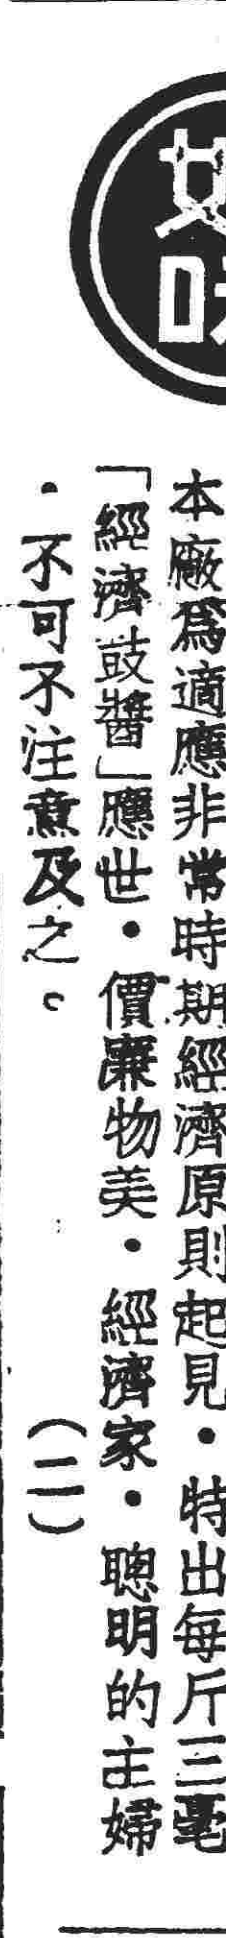 本廠爲適應非常時期經濟原則起見・特出每斤三毫
「經濟豉醬」應世・價廉物美・經濟家・聰明的主婦
・不可不注意及之。 (二)